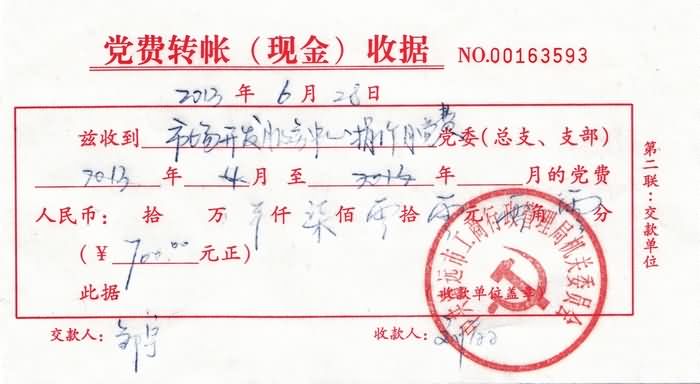 党费转帐(现金)收据 NO.00163593
2013 年 6 月 28 日
兹收到 市场开发服务中心 党委(总支、支部)
2013 年 4 月 至 2013 年 月的党费
人民币: 拾 万 仟 柒 佰 零 拾 零 元 零 角 零 分
(¥ 700.00 元正)
此据 收款单位盖章)
交款人: 收款人:
第二联:交款单位
市工商行政管理局机关委员会